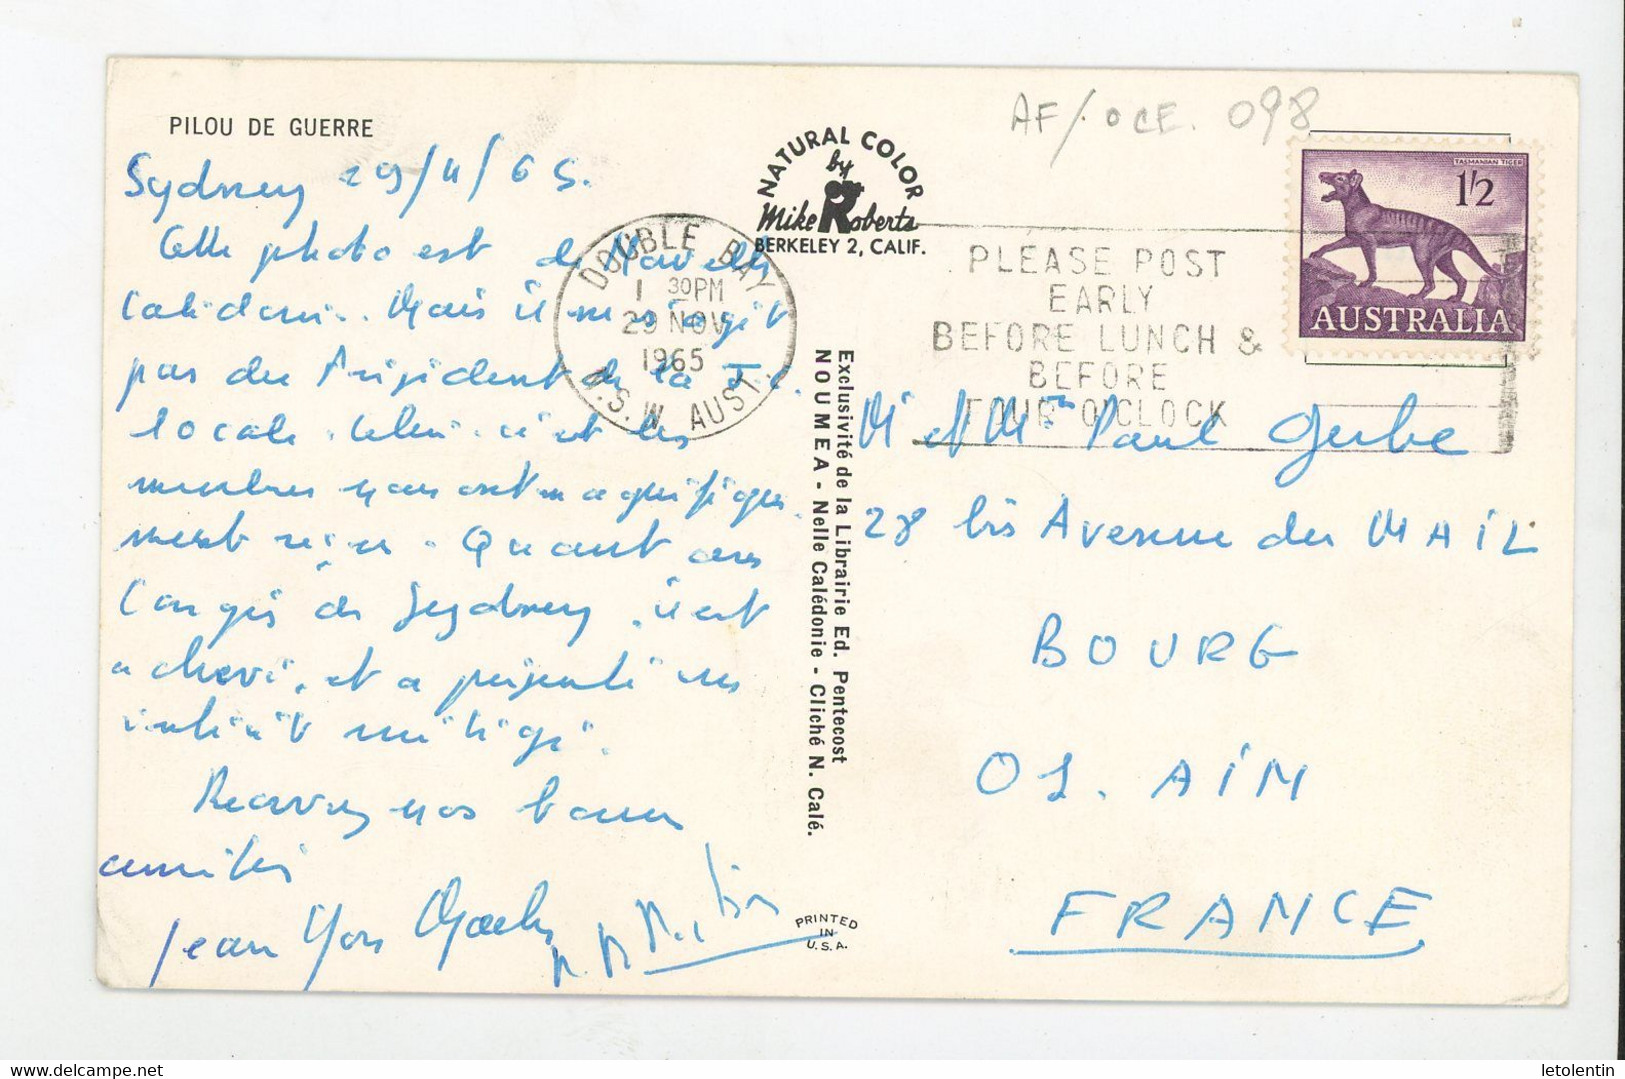 PILOU DE GUERRE
AF/OCE. 098
Sydney 29/11/65.
Cette photo est de Nouvelle
Calédonie. Mais il ne s'agit
pas du Président de la J.C.
locale. Celui-ci et les
membres nous ont magnifique
ment reçus. Quant au
Congrès de Sydney, il est
achevé, et a présenté un
intérêt mitigé.
Recevez nos bonnes
amitiés
Jean Yves
NATURAL COLOR
by
Mike Roberts
BERKELEY 2, CALIF.
DOUBLE BAY
1 30PM
29 NOV
1965
N.S.W. AUST.
PLEASE POST
EARLY
BEFORE LUNCH &
BEFORE
FOUR O'CLOCK
TASMANIAN TIGER
1'/2
AUSTRALIA
Exclusivité de la Librairie Ed. Pentecost
NOUMEA - Nelle Calédonie - Cliché N. Calé.
PRINTED
IN
U.S.A.
M et Mme Paul Gerbe
28 bis Avenue du MAIL
BOURG
01. AIN
FRANCE
letolentin